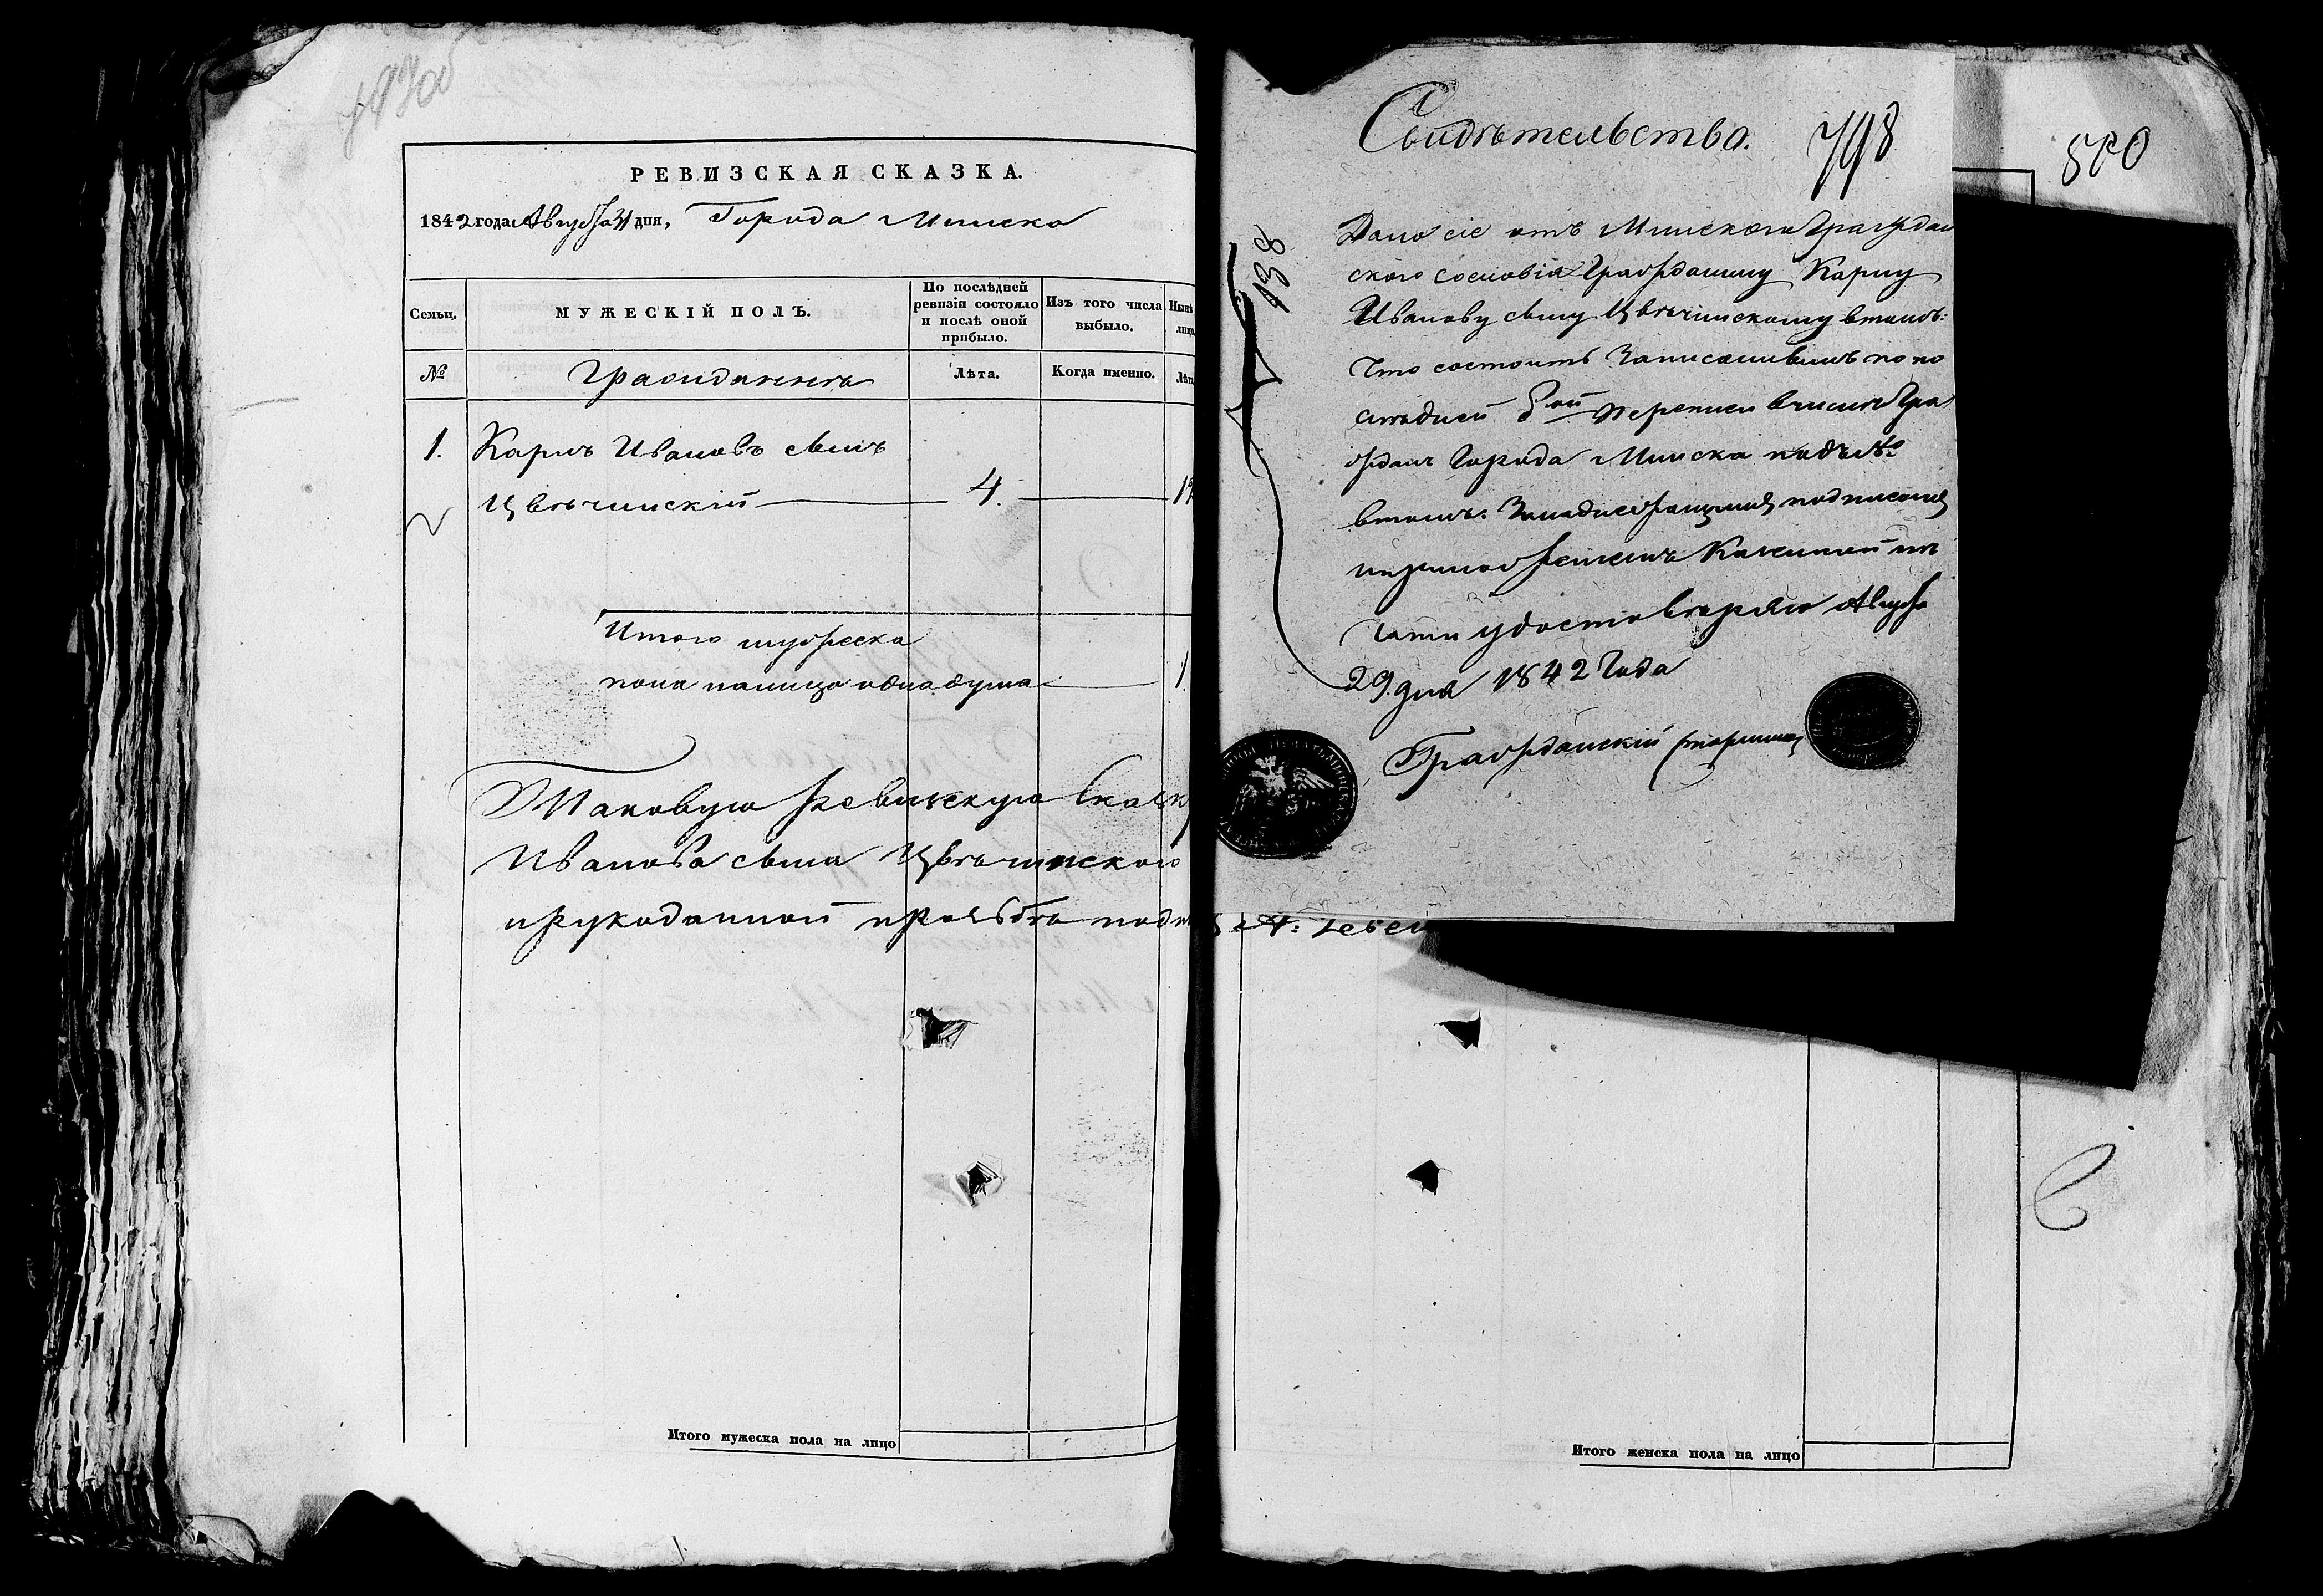 РЕВИЗСКАЯ СКАЗКА.
1842 года Августа 31 дня, Города Минска
Семьи.
МУЖЕСКІЙ ПОЛЪ.
По послѣдней ревизіи состояло и послѣ оной прибыло.
Изъ того числа выбыло.
Нынѣ
лицо
№
Гражданинъ
Лѣта.
Когда именно.
Лѣта
1. Карлъ Ивановъ сынъ
Цвѣчинскій 4.
Итого мужеска
пола налицо одна душа 1.
Таковую Ревизскую Сказку
Иванова сына Цвѣчинского
ирукоданной прозьбѣ
Итого мужеска пола на лицо
Свидѣтельство.
798
500
138
Дано сіе отъ Минского Граждан
ского сословія Гражданину Карлу
Иванову сыну Цвѣчинскому втомъ:
Что состоитъ Записаннымъ по по
слѣдней 8ой переписи вчислѣ Гра
жданъ Города Минска подъ №
втомъ. Занадлежащимъ подписомъ
иприложеніемъ Казенной пе
чати удостовѣряю Августа
29 дня 1842 Года
Гражданскій Старшина
Итого женска пола на лицо